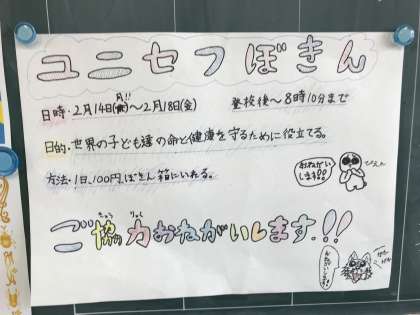 ユニセフぼきん
月!!
日時:2月14日(月)~2月18日(金) 登校後~8時10分まで
目的:世界の子ども達の命と健康を守るために役立てる。
おねがいします!!
ぴえん
方法:1日、100円、ぼきん箱にいれる。
きょう りょく
ご協力おねがいします.!!